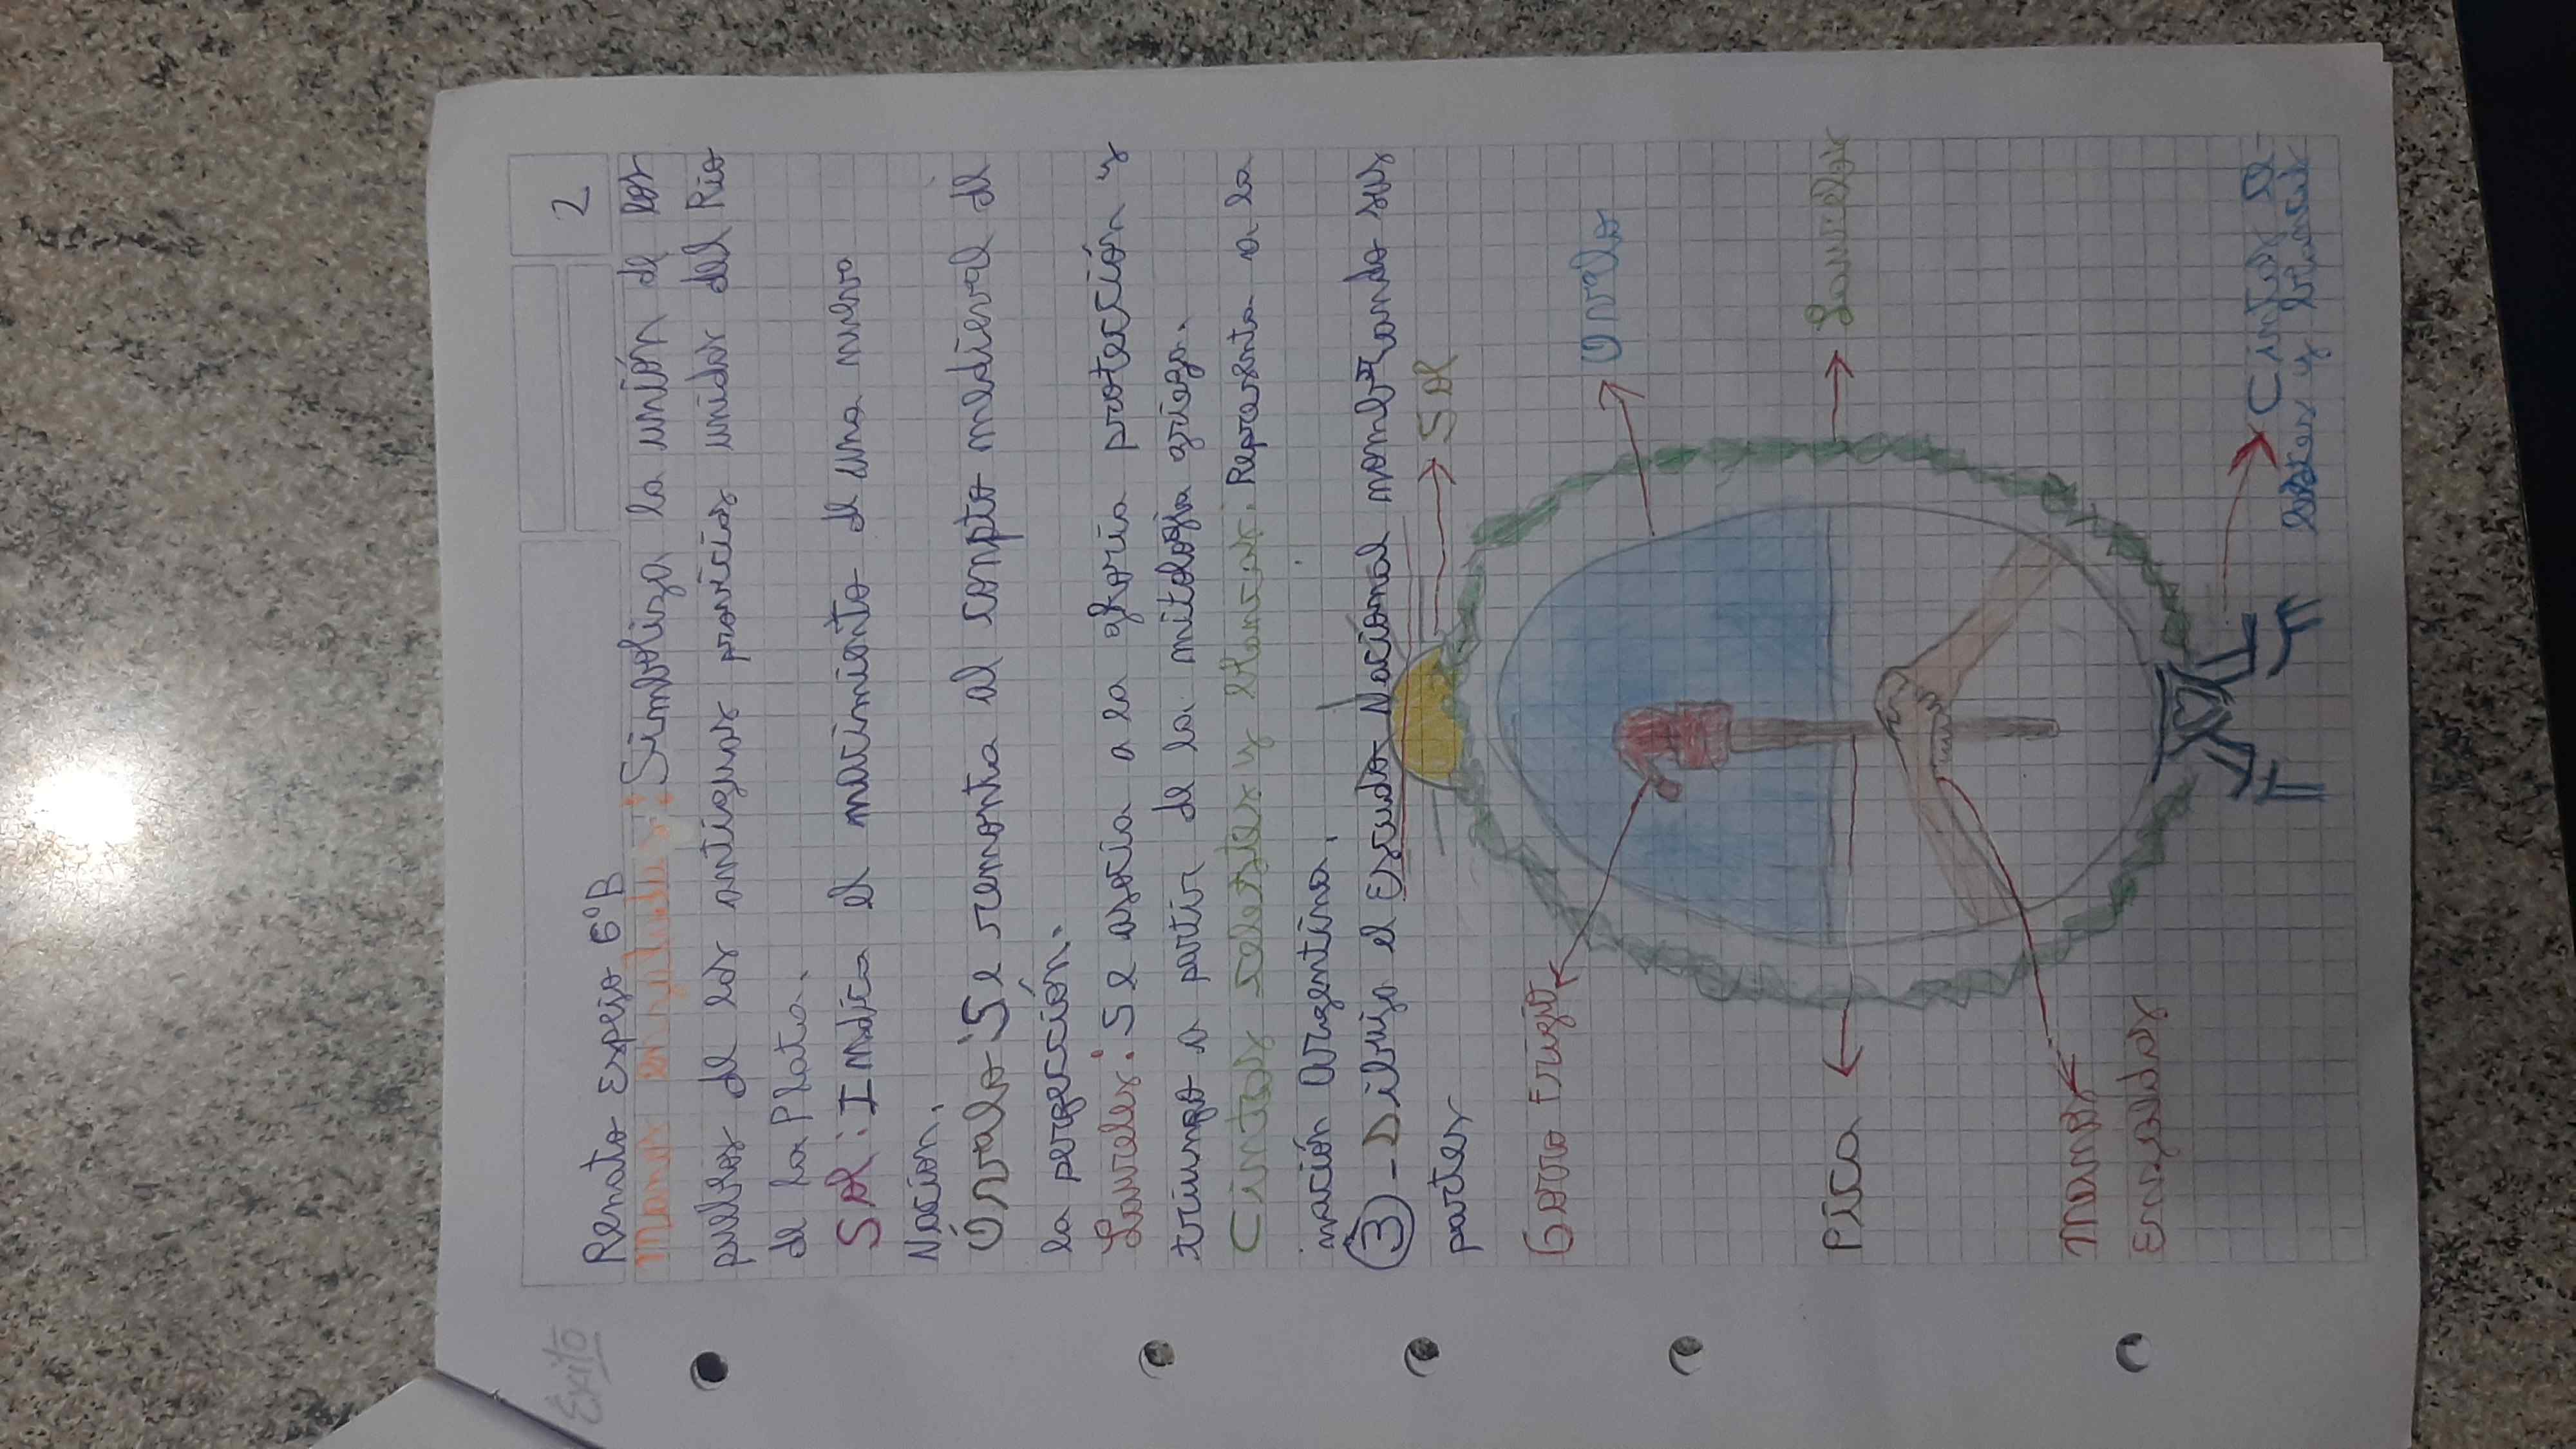 Éxito
2
Renato Espejo 6°B
Manos enrzaludas: Simboliza la unión de los
pueblos de las antiguas provicias unidas del Rio
de la Plata.
Sol: Indica el nacimiento de una nueva
Nacion.
Óvalo: Se remonta al conpto medieval de
la perfección.
Laureles: Se asocia a la gloria protección y
triunfo a partir de la mitología griega.
Cintas celestes y blancas: Representa a la
nación Argentina.
3 - Dibujo el Escudo Nacional nombrando sus
partes
Sol
Gorro Frigio
Óvalo
Pica
Laureles
Manos
Enrzaldas
Cintas ce-
lestes y blancas